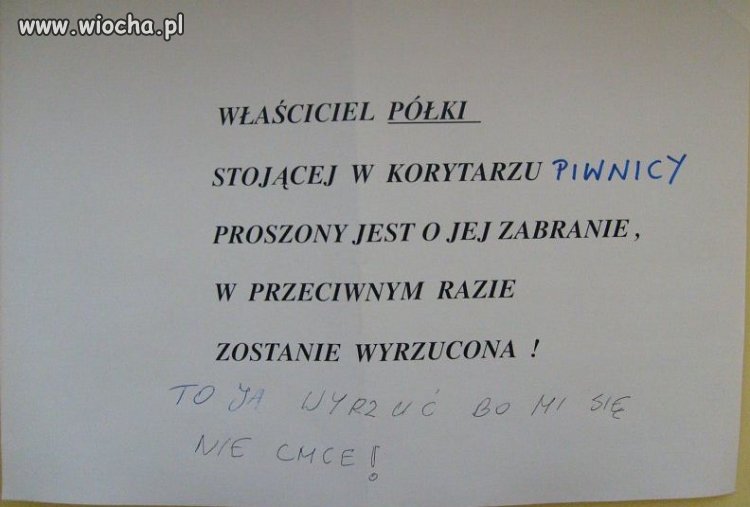 www.wiocha.pl
WŁAŚCICIEL PÓŁKI
STOJĄCEJ W KORYTARZU PIWNICY
PROSZONY JEST O JEJ ZABRANIE,
W PRZECIWNYM RAZIE
ZOSTANIE WYRZUCONA !
TO JA WYRZUĆ BO MI SIĘ
NIE CMCE!